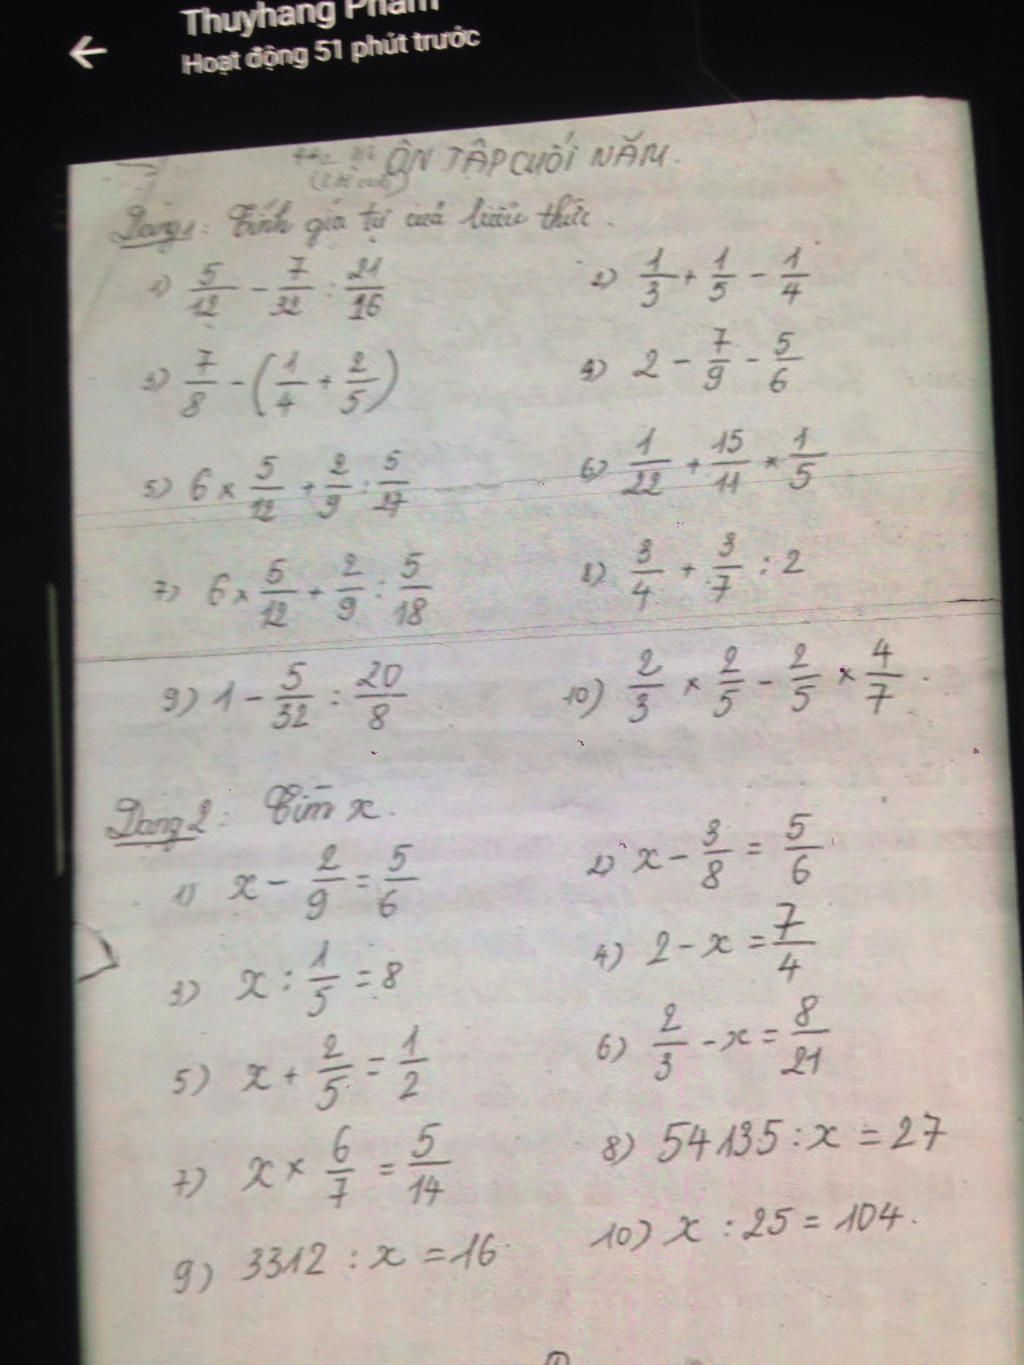 Thuyhang Phạm
Hoạt động 51 phút trước
ÔN TẬP CUỐI NĂM.
Dạng 1: Tính giá trị của biểu thức.
1) 5/12 - 7/32 : 21/16
2) 1/3 + 1/5 - 1/4
3) 7/8 - (1/4 + 2/5)
4) 2 - 7/9 - 5/6
5) 6 × 5/12 + 2/9 : 5/27
6) 1/22 + 15/11 × 1/5
7) 6 × 5/12 + 2/9 : 5/18
8) 3/4 + 3/7 : 2
9) 1 - 5/32 : 20/8
10) 2/3 × 2/5 - 2/5 × 4/7.
Dạng 2: Tìm x.
1) x - 2/9 = 5/6
2) x - 3/8 = 5/6
3) x : 1/5 = 8
4) 2 - x = 7/4
5) x + 2/5 = 1/2
6) 2/3 - x = 8/21
7) x × 6/7 = 5/14
8) 54135 : x = 27
9) 3312 : x = 16
10) x : 25 = 104.